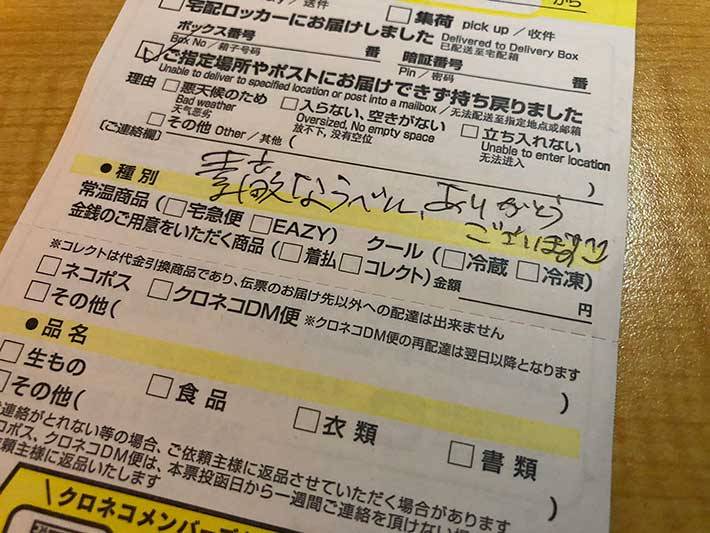 から
宅配ロッカーにお届けしました Delivered to Delivery Box 已配送至宅配箱
集荷 pick up / 收件
ボックス番号 Box No / 箱子号码 番 暗証番号 Pin / 密码 番
ご指定場所やポストにお届けできず持ち戻りました
Unable to deliver to specified location or post into a mailbox / 无法配送至指定地点或邮箱
理由 悪天候のため Bad weather 天气恶劣 入らない、空きがない Oversized, No empty space 放不下, 没有空位 立ち入れない Unable to enter location 无法进入
その他 Other / 其他 ( )
〔ご連絡欄〕
素敵なラベル、ありがとう
ございます
●種別
常温商品 (宅急便 EAZY) クール (冷蔵 冷凍)
金銭のご用意をいただく商品 (着払 コレクト) 金額 円
※コレクトは代金引換商品であり、伝票のお届け先以外への配達は出来ません
ネコポス クロネコDM便 ※クロネコDM便の再配達は翌日以降となります
その他( )
●品名
生もの 食品 衣類 書類
その他( )
連絡がとれない等の場合、ご依頼主様に返品させていただく場合があります
コポス、クロネコDM便は、本票投函日から一週間ご連絡を頂けない場
依頼主様に返品いたします
\クロネコメンバーズ